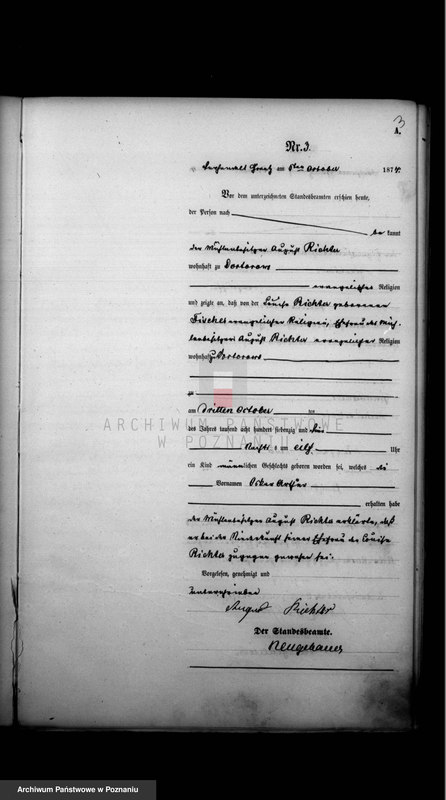 3
A.
Nr. 3.
am 6ten October 1874.
Vor dem unterzeichneten Standesbeamten erschien heute,
der Person nach
be kannt
der Mühlenbesitzer August Richter
wohnhaft zu Doctorowo
evangelischer Religion
und zeigte an, daß von der Louise Richter geborenen
evangelischer Religion, Ehefrau des Müh-
lenbesitzers August Richter evangelischer Religion
wohnhaft zu Doctorowo
zu
am dritten October des
des Jahres tausend acht hundert siebenzig und vier
Nachts um eilf Uhr
ein Kind männlichen Geschlechts geboren worden sei, welches die
Vornamen Oskar Arthur
erhalten habe
der Mühlenbesitzer August Richter erklärte, daß
er bei der Niederkunft seiner Ehefrau der Louise
Richter zugegen gewesen sei.
Vorgelesen, genehmigt und
unterschrieben
August Richter
Der Standesbeamte.
Neugebauer
ARCHIWUM PAŃSTWOWE
W POZNANIU
Archiwum Państwowe w Poznaniu